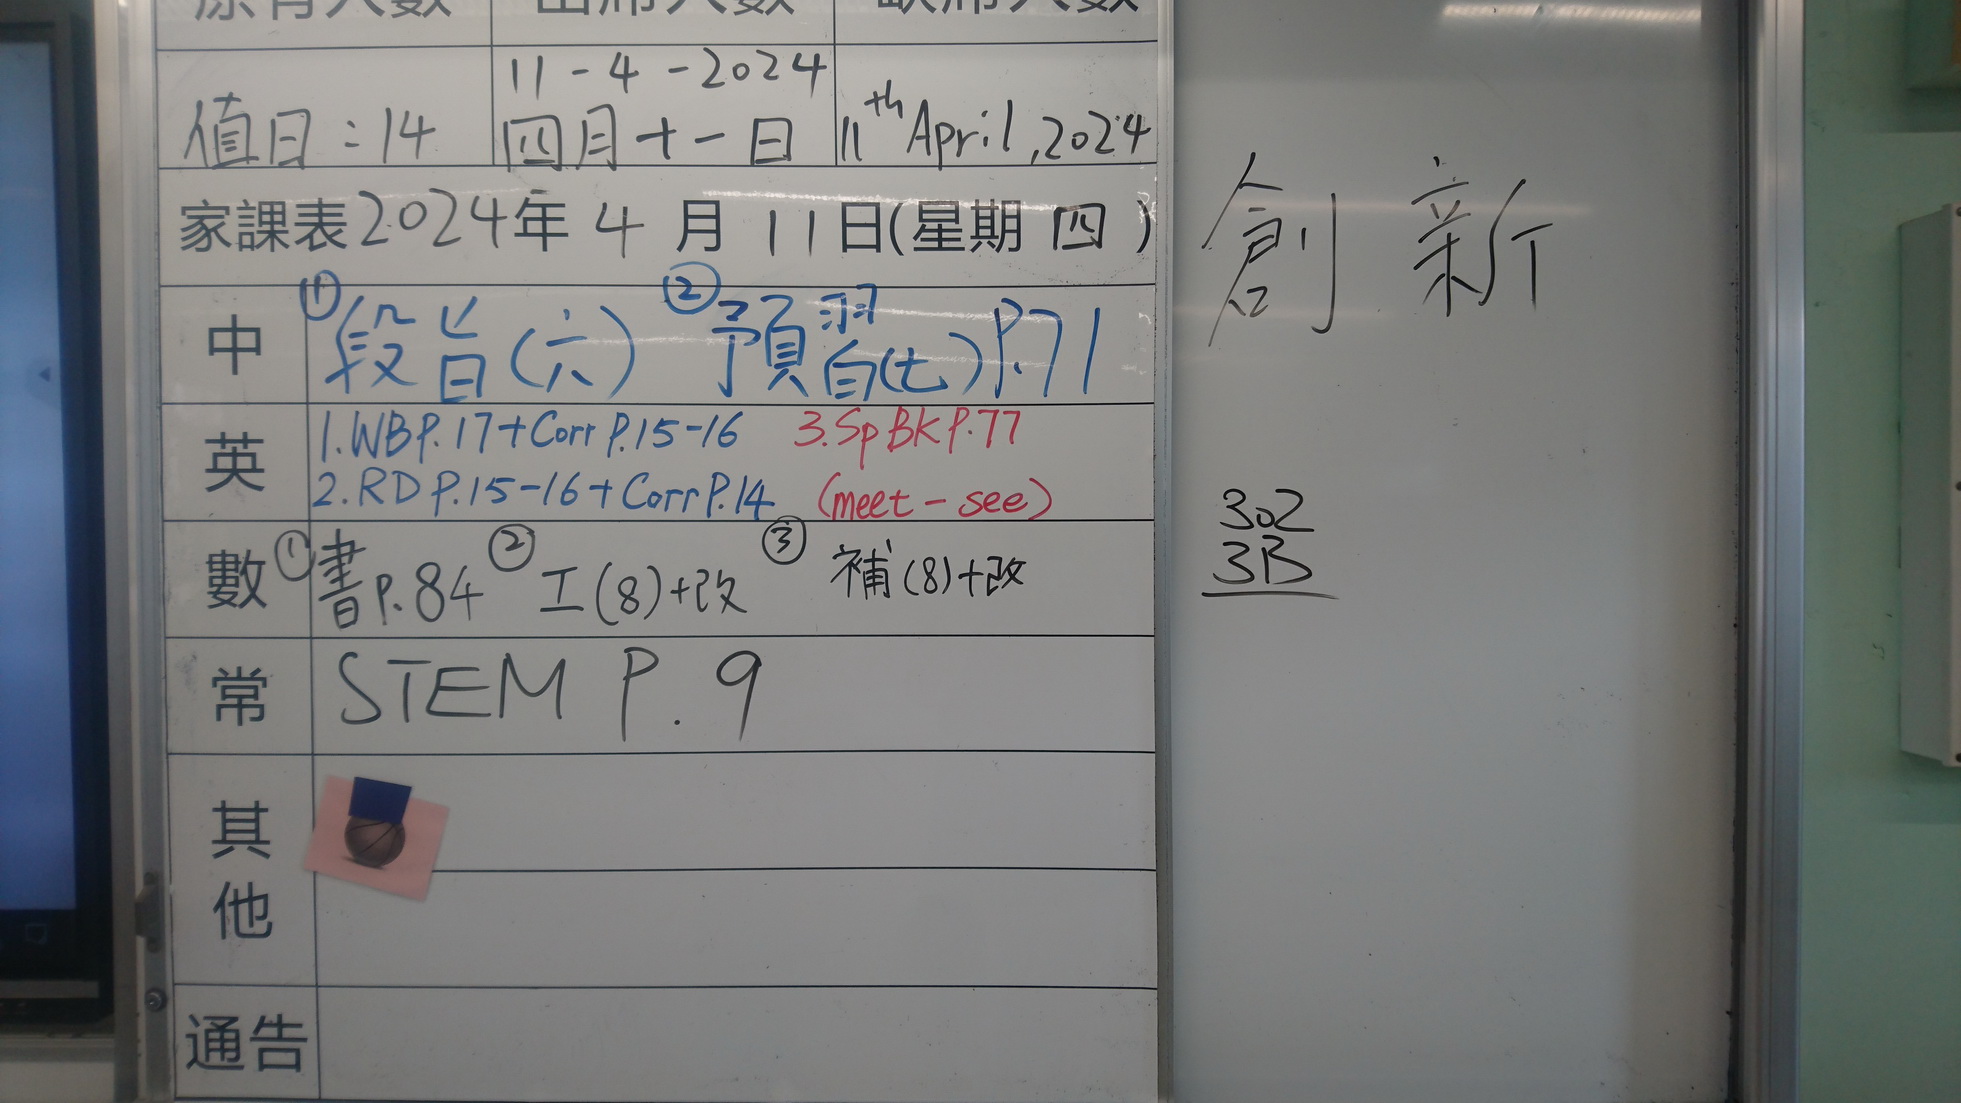 原有人數 出席人數 缺席人數
值日:14
11-4-2024
四月十一日
11th April, 2024
家課表2024年4月11日(星期四)
中 ①段旨(六) ②預習(七)P.71
英 1.WBP.17+Corr P.15-16 3.Sp BK P.77
2.RD P.15-16+Corr P.14 (meet-see)
數 ①書P.84 ②工(8)+改 ③補(8)+改
常 STEM P.9
其他
通告
創新
302
3B